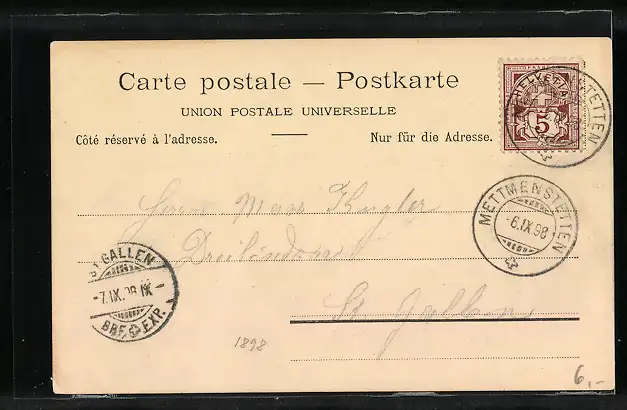 Carte postale — Postkarte
UNION POSTALE UNIVERSELLE
Côté réservé à l'adresse.
Nur für die Adresse.
HELVETIA
5
METTMENSTETTEN
-6.IX.98
Herrn Max Kugler
St. Gallen
ST. GALLEN
-7.IX.98.IX-
BRF. EXP.
1898
6,-